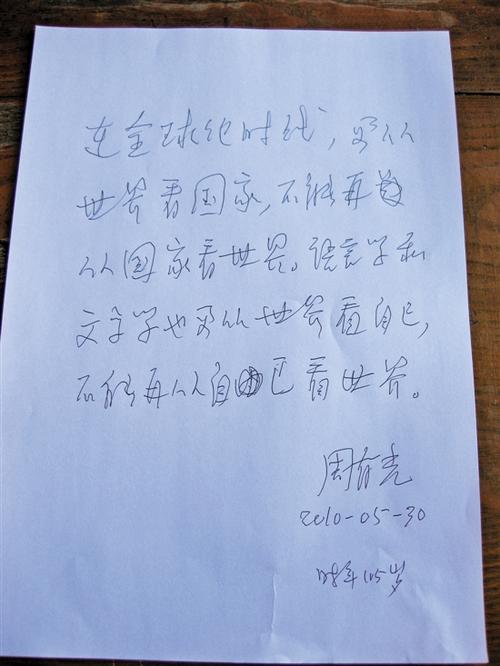 在全球化时代，要从
世界看国家，不能再
从国家看世界。语言学和
文字学也要从世界看自己，
不能再从自己看世界。
周有光
2010-05-30
时年105岁